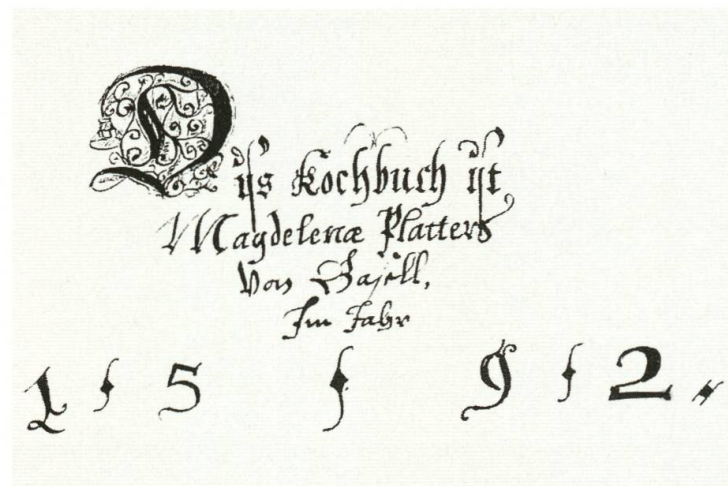 Diß Kochbuch ist
Magdelenæ Platters
Von Basell,
Im Jahr
1 5 9 2